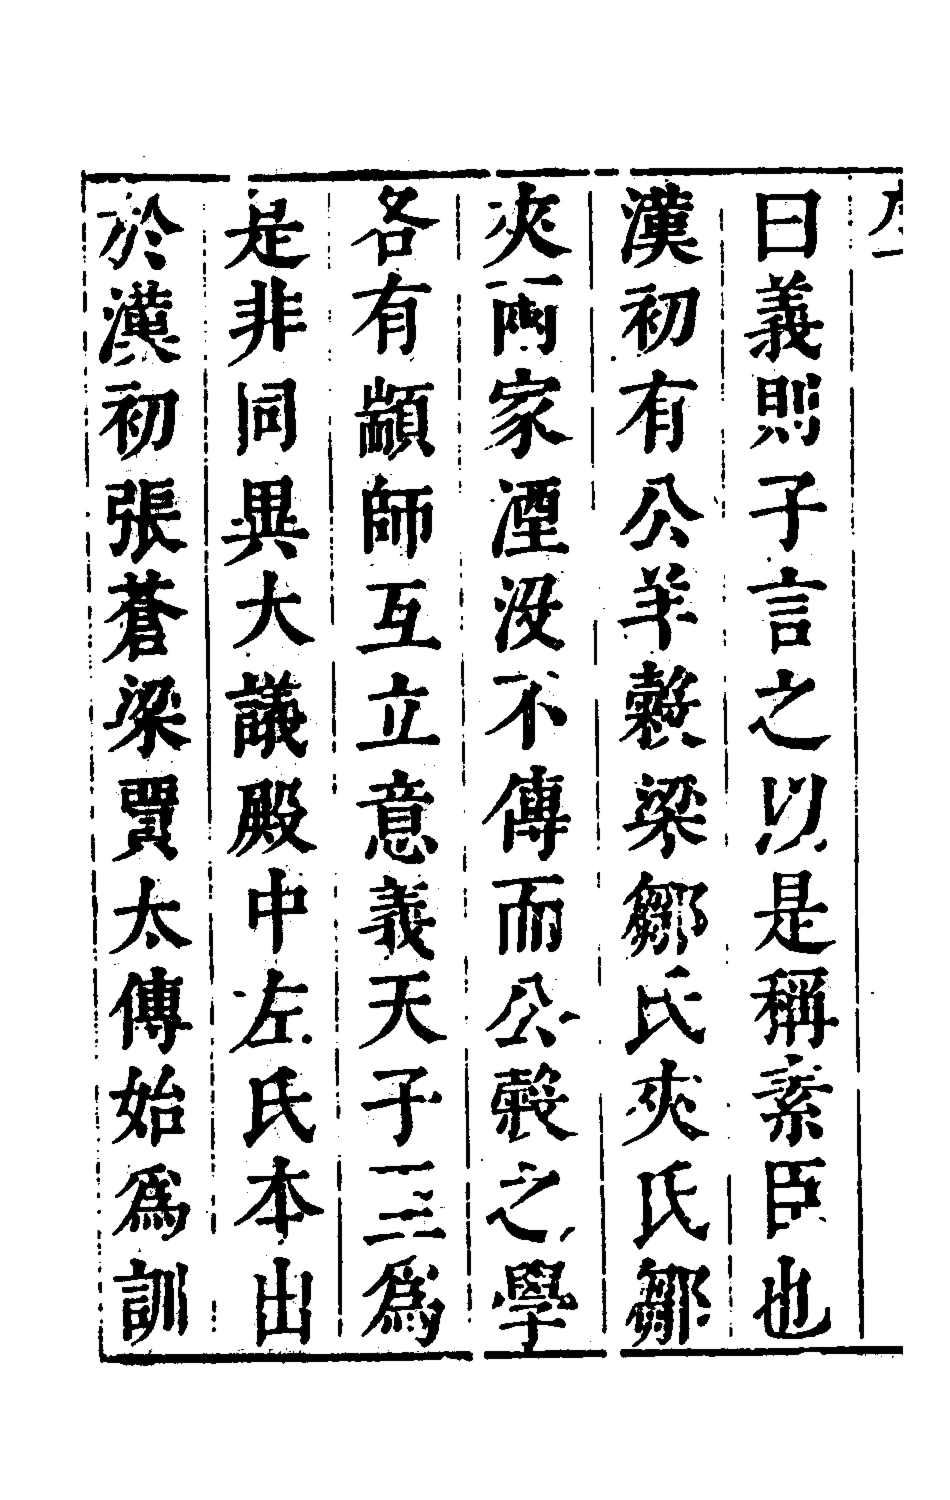 曰義則子言之以是稱素臣也
漢初有公羊穀梁鄒氏夾氏鄒
夾兩家湮沒不傳而公穀之學
各有顓師互立意義天子三爲
是非同異大議殿中左氏本出
於漢初張蒼梁賈太傅始爲訓